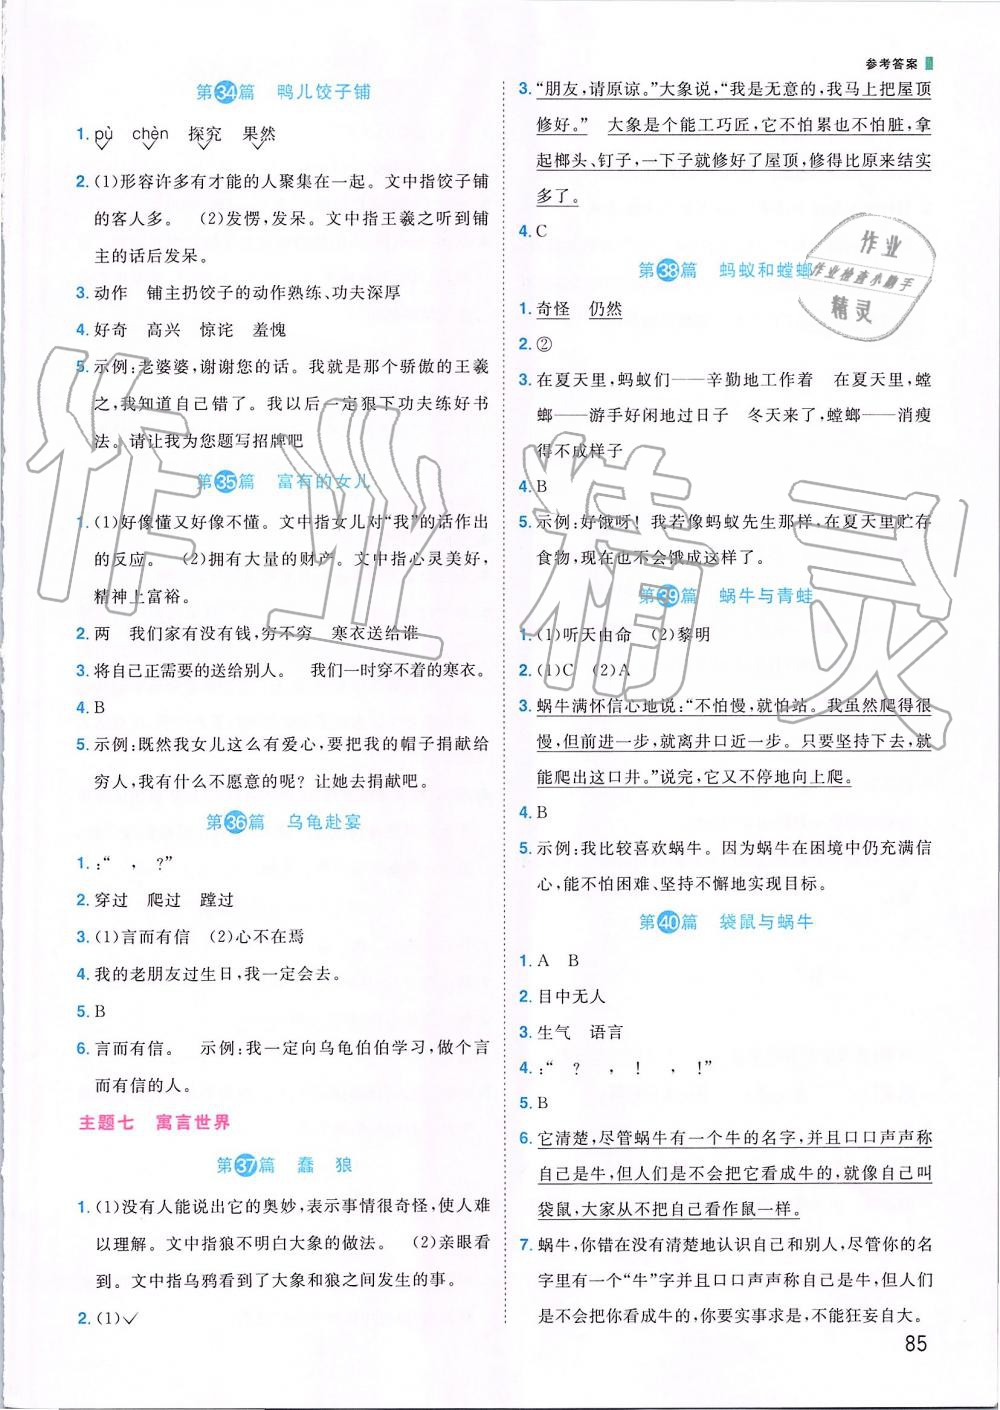 参考答案
第34篇 鸭儿饺子铺
1. pù chèn 探究 果然
2. (1)形容许多有才能的人聚集在一起。文中指饺子铺
的客人多。 (2)发愣,发呆。文中指王羲之听到铺
主的话后发呆。
3. 动作 铺主扔饺子的动作熟练、功夫深厚
4. 好奇 高兴 惊诧 羞愧
5. 示例:老婆婆,谢谢您的话。我就是那个骄傲的王羲
之,我知道自己错了。我以后一定狠下功夫练好书
法。请让我为您题写招牌吧
第35篇 富有的女儿
1. (1)好像懂又好像不懂。文中指女儿对“我”的话作出
的反应。 (2)拥有大量的财产。文中指心灵美好,
精神上富裕。
2. 两 我们家有没有钱,穷不穷 寒衣送给谁
3. 将自己正需要的送给别人。 我们一时穿不着的寒衣。
4. B
5. 示例:既然我女儿这么有爱心,要把我的帽子捐献给
穷人,我有什么不愿意的呢?让她去捐献吧。
第36篇 乌龟赴宴
1. :“ , ?”
2. 穿过 爬过 蹚过
3. (1)言而有信 (2)心不在焉
4. 我的老朋友过生日,我一定会去。
5. B
6. 言而有信。 示例:我一定向乌龟伯伯学习,做个言
而有信的人。
主题七 寓言世界
第37篇 蠢 狼
1. (1)没有人能说出它的奥妙,表示事情很奇怪,使人难
以理解。文中指狼不明白大象的做法。 (2)亲眼看
到。文中指乌鸦看到了大象和狼之间发生的事。
2. (1)✓
3. “朋友,请原谅。”大象说,“我是无意的,我马上把屋顶
修好。” 大象是个能工巧匠,它不怕累也不怕脏,拿
起榔头、钉子,一下子就修好了屋顶,修得比原来结实
多了。
4. C
第38篇 蚂蚁和螳螂
1. 奇怪 仍然
2. ②
3. 在夏天里,蚂蚁们——辛勤地工作着 在夏天里,螳
螂——游手好闲地过日子 冬天来了,螳螂——消瘦
得不成样子
4. B
5. 示例:好饿呀!我若像蚂蚁先生那样,在夏天里贮存
食物,现在也不会饿成这样了。
第39篇 蜗牛与青蛙
1. (1)听天由命 (2)黎明
2. (1)C (2)A
3. 蜗牛满怀信心地说:“不怕慢,就怕站。我虽然爬得很
慢,但前进一步,就离井口近一步。只要坚持下去,就
能爬出这口井。”说完,它又不停地向上爬。
4. B
5. 示例:我比较喜欢蜗牛。因为蜗牛在困境中仍充满信
心,能不怕困难、坚持不懈地实现目标。
第40篇 袋鼠与蜗牛
1. A B
2. 目中无人
3. 生气 语言
4. :“ ? ,! ,!”
5. B
6. 它清楚,尽管蜗牛有一个牛的名字,并且口口声声称
自己是牛,但人们是不会把它看成牛的,但如果自己叫
袋鼠,大家从不把自己看作鼠一样。
7. 蜗牛,你错在没有清楚地认识自己和别人,尽管你的
名字里有一个“牛”字并且口口声声称自己是牛,但人们
是不会把你看成牛的,你要实事求是,不能狂妄自大。
85
作业
作业检查小助手
精灵
作业精灵